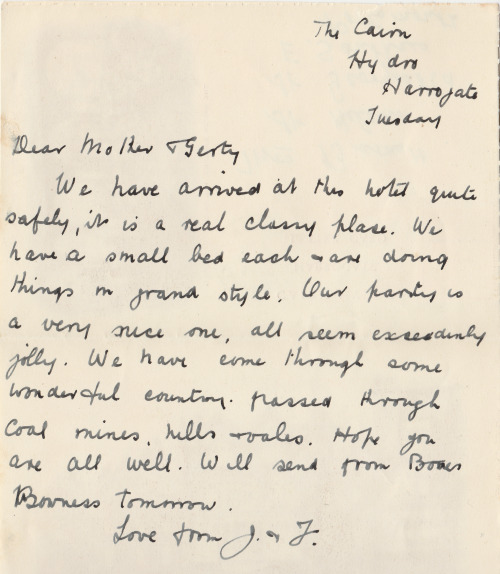 The Cairn
Hydro
Harrogate
Tuesday
Dear Mother & Gerty
We have arrived at this hotel quite
safely, it is a real classy plase. We
have a small bed each & are doing
things in grand style. Our party is
a very nice one, all seem exseedinly
jolly. We have come through some
wonderful country. passed through
Coal mines, hills & vales. Hope you
are all well. Will send from Bones
Bowness tomorrow.
Love from J. & F.